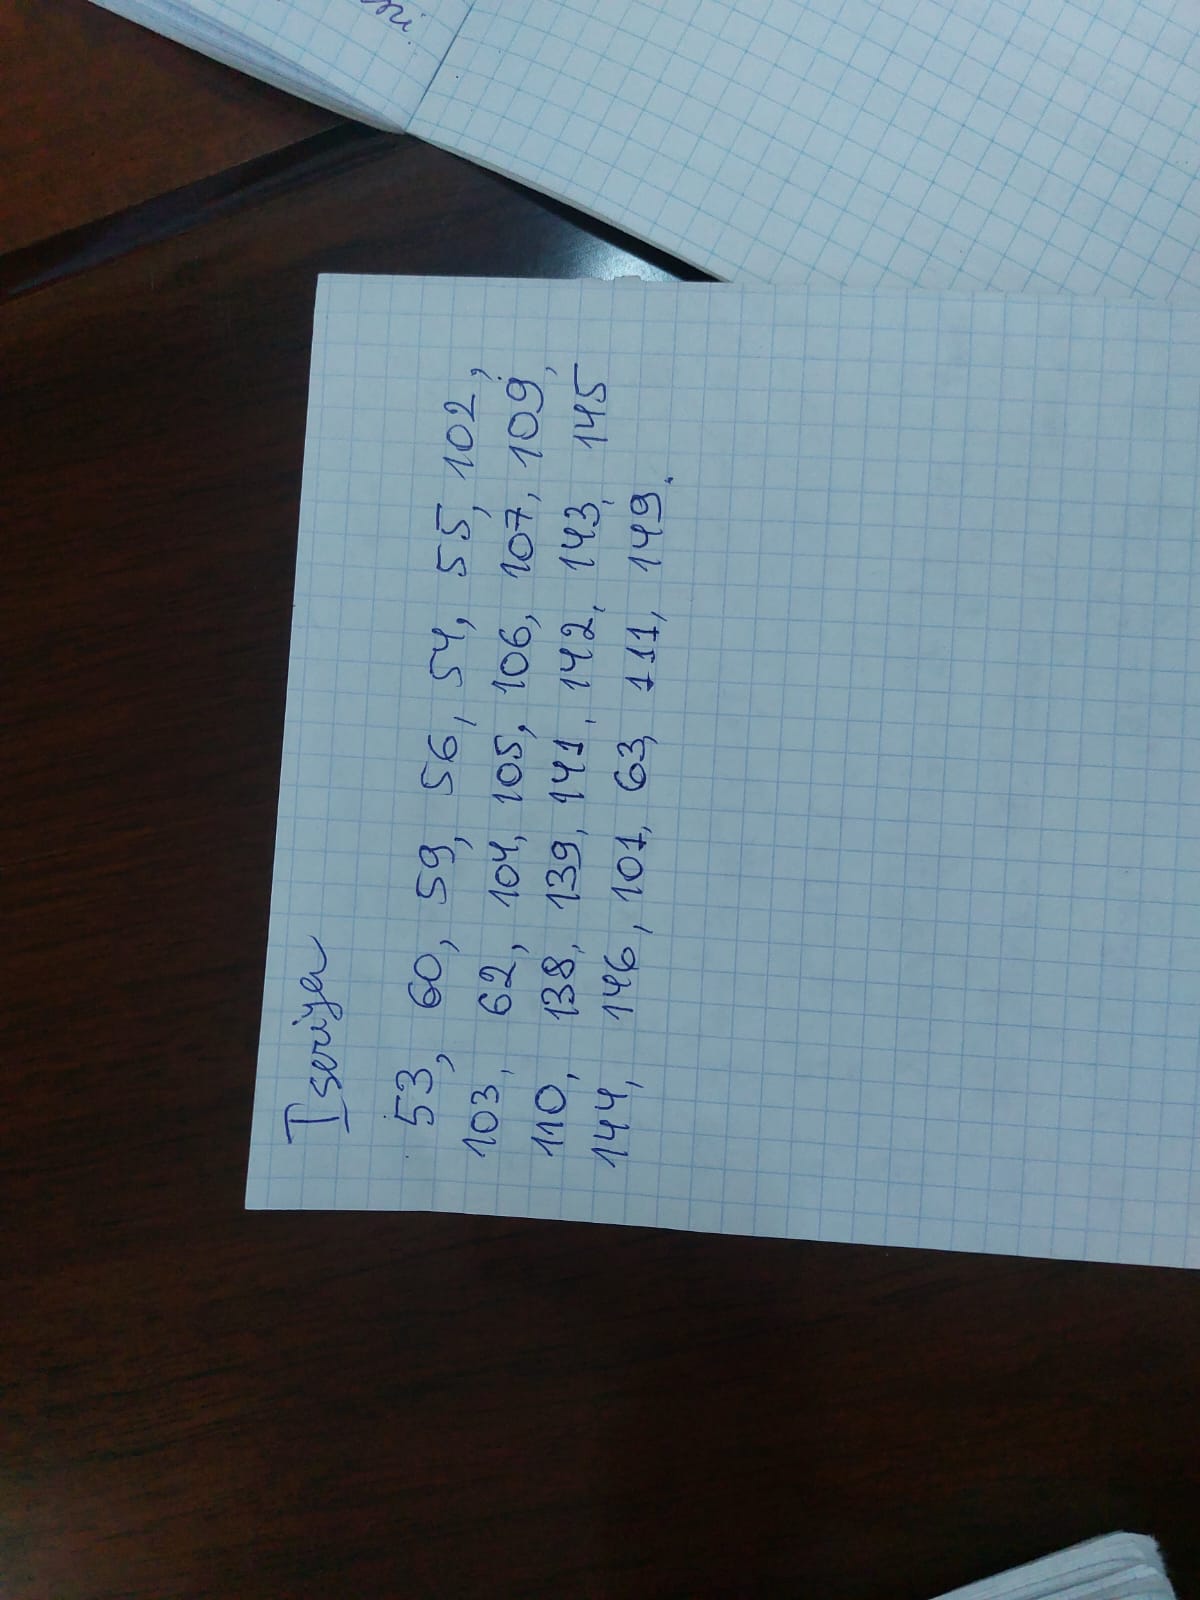 I seriya
53, 60, 59, 56, 54, 55, 102,
103, 62, 104, 105, 106, 107, 109,
110, 138, 139, 141, 142, 143, 145
144, 146, 101, 63, 111, 149.